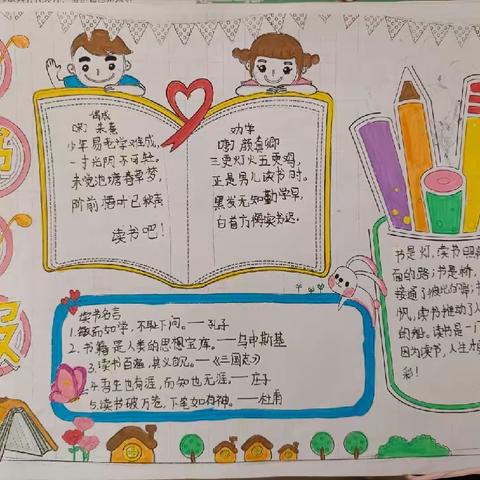 书
报
偶成
宋 朱熹
少年易老学难成,
一寸光阴不可轻。
未觉池塘春草梦,
阶前梧叶已秋声
读书吧!
劝学
唐 颜真卿
三更灯火五更鸡,
正是男儿读书时。
黑发不知勤学早,
白首方悔读书迟。
读书名言
1.敏而好学,不耻下问。——孔子
2.书籍是人类的思想宝库。——乌申斯基
3.读书百遍,其义自见。——《三国志》
4.吾生也有涯,而知也无涯。——庄子
5.读书破万卷,下笔如有神。——杜甫
书是灯,读书照
面的路;书是桥,
接通了彼此的岸;书
帆,读书推动了人
的船。读书是一门
因为读书,人生
彩!